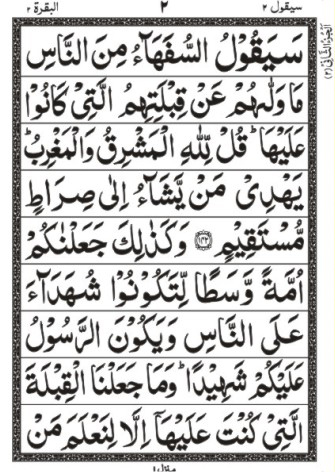 البقرة ٢
٢
سيقول ٢
سَيَقُوْلُ السُّفَهَآءُ مِنَ النَّاسِ
مَا وَلّٰىهُمْ عَنْ قِبْلَتِهِمُ الَّتِيْ كَانُوْا
عَلَيْهَا ؕ قُلْ لِّلّٰهِ الْمَشْرِقُ وَالْمَغْرِبُ ؕ
يَهْدِيْ مَنْ يَّشَآءُ اِلٰى صِرَاطٍ
مُّسْتَقِيْمٍ ﴿۱۴۲﴾ وَكَذٰلِكَ جَعَلْنٰكُمْ
اُمَّةً وَّسَطًا لِّتَكُوْنُوْا شُهَدَآءَ
عَلَى النَّاسِ وَيَكُوْنَ الرَّسُوْلُ
عَلَيْكُمْ شَهِيْدًا ؕ وَمَا جَعَلْنَا الْقِبْلَةَ
الَّتِيْ كُنْتَ عَلَيْهَاۤ اِلَّا لِنَعْلَمَ مَنْ
منزل ١